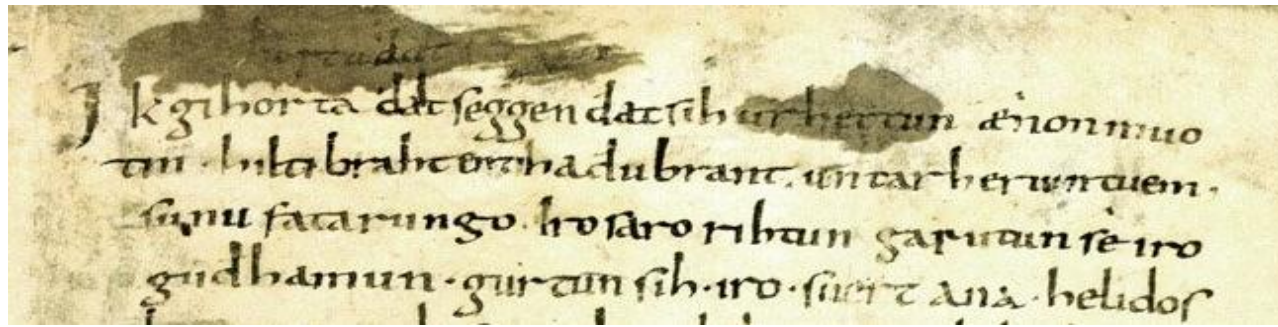 Ik gihorta dat seggen dat sih urhettun ænon muo
tin · hiltibraht enti hadubrant · untar heriun tuem ·
sunu fatarungo · iro saro rihtun garutun se iro
gudhamun · gurtun sih · iro · suert ana · helidos